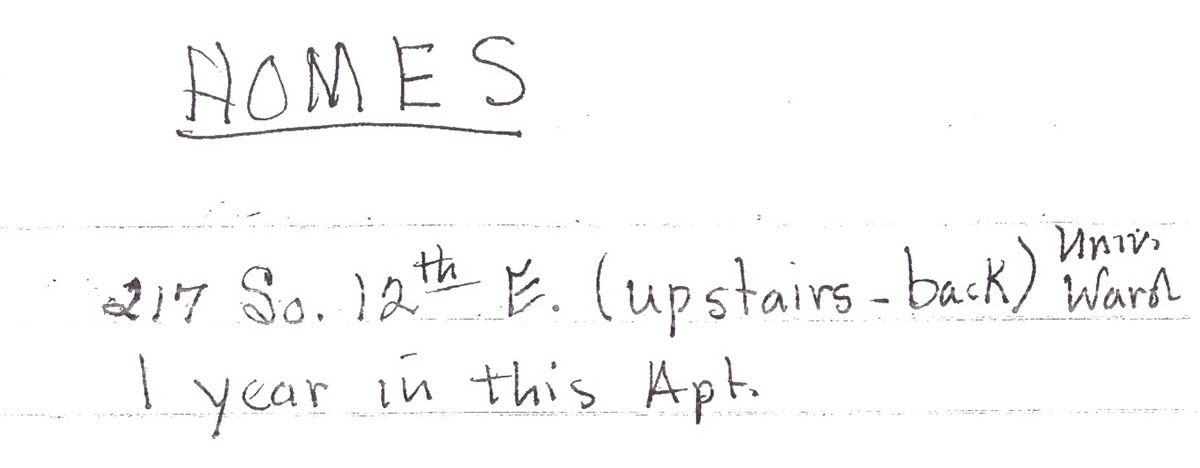 HOMES
217 So. 12th E. (upstairs - back) Univ. Ward
1 year in this Apt.